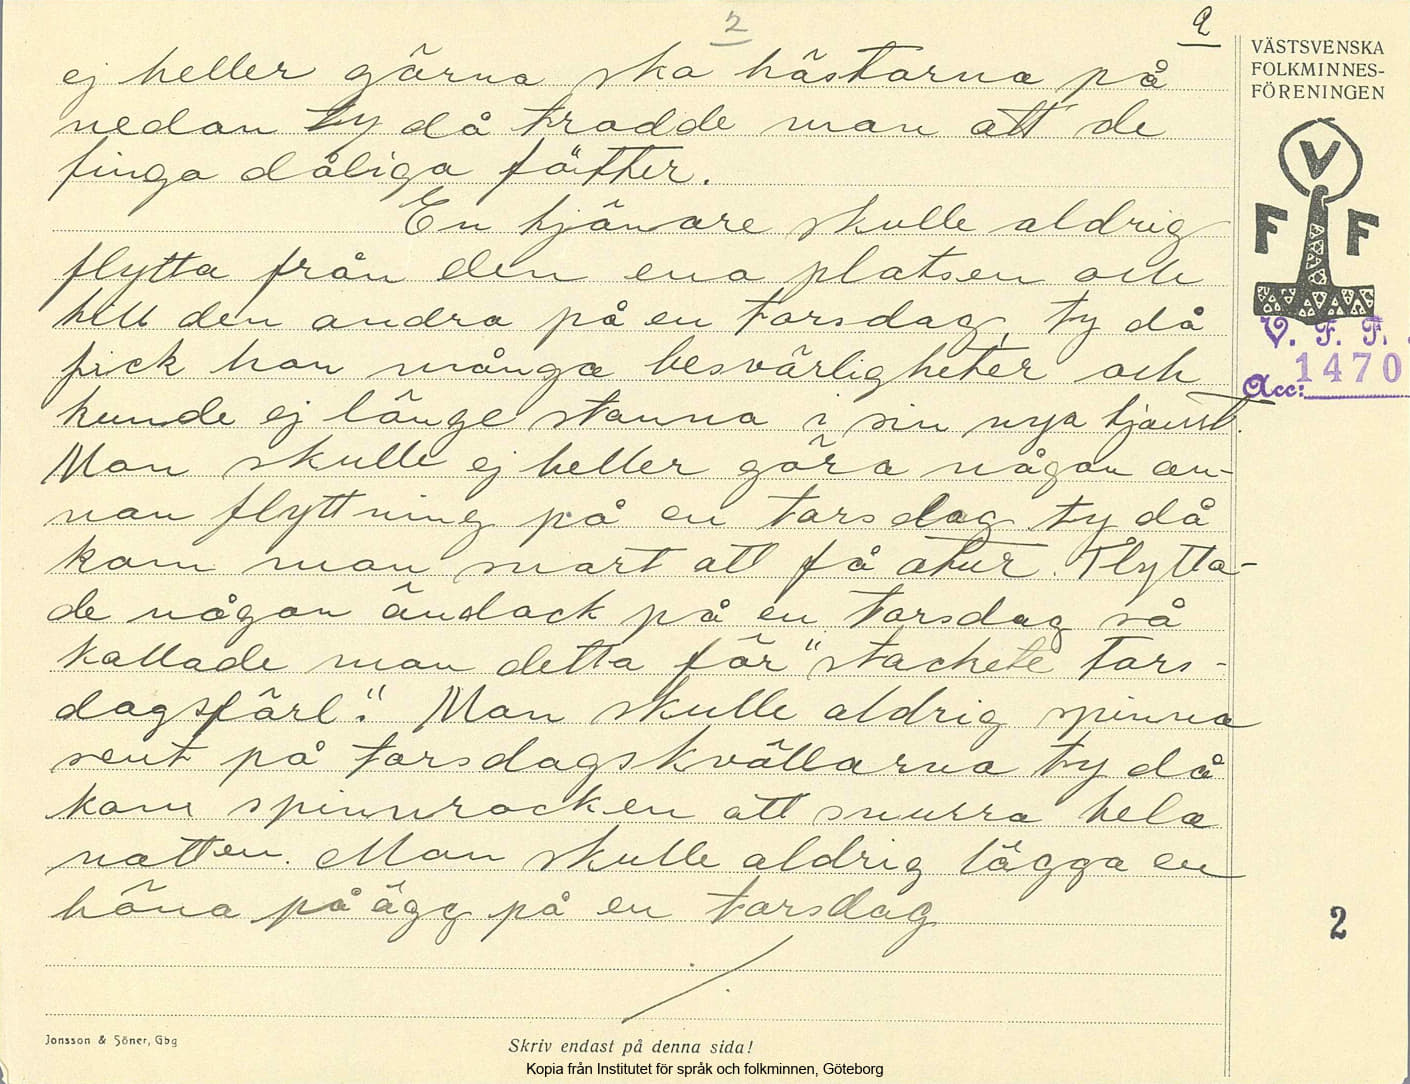 2
2
VÄSTSVENSKA
FOLKMINNES-
FÖRENINGEN
V
F F
V. F. F.
Acc: 1470
ej heller gärna sko hästarna på
nedan ty då trodde man att de
finga dåliga fötter.
En tjänare skulle aldrig
flytta från den ena platsen och
till den andra på en torsdag, ty då
fick han många besvärligheter och
kunde ej länge stanna i sin nya tjänst.
Man skulle ej heller göra någon an-
nan flyttning på en torsdag ty då
kom man snart att få åter. Flytta-
de någon ändock på en torsdag så
kallade man detta för "stackete tors-
dagsfärl". Man skulle aldrig spinna
sent på torsdagskvällarna ty då
kom spinnrocken att snurra hela
natten. Man skulle aldrig lägga en
höna på ägg på en torsdag
2
Jonsson & Söner, Gbg
Skriv endast på denna sida!
Kopia från Institutet för språk och folkminnen, Göteborg